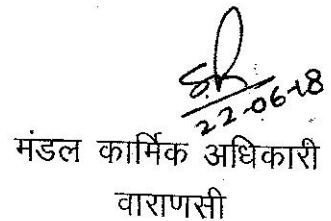 22-06-18
मंडल कार्मिक अधिकारी
वाराणसी